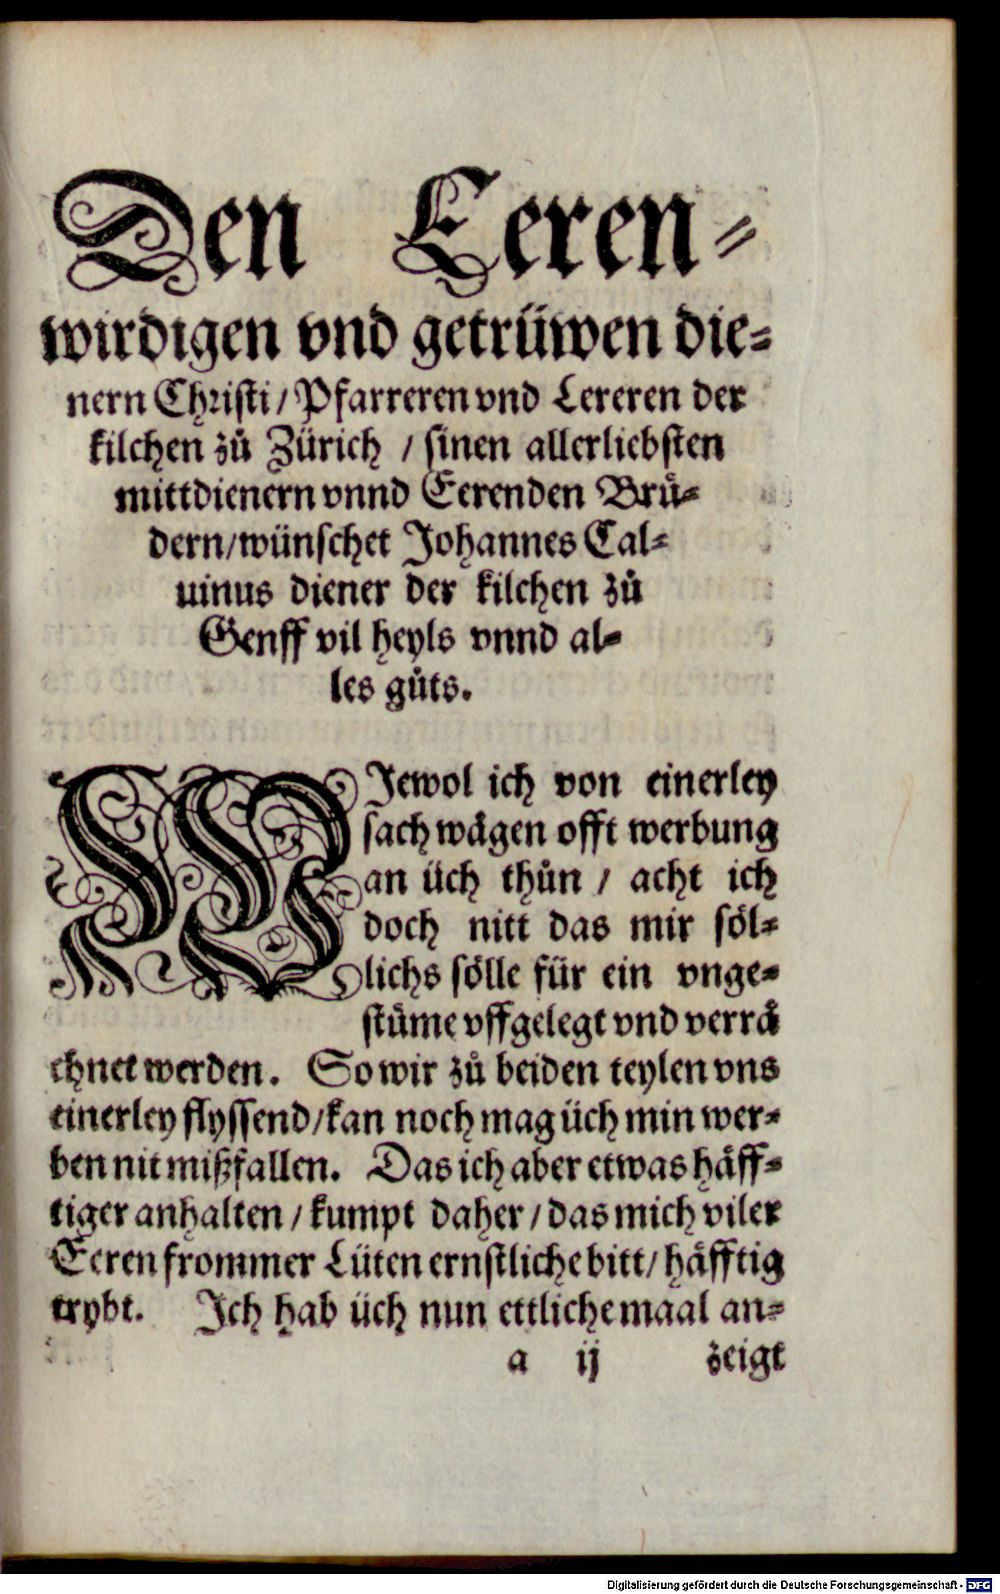 Den Eeren⸗
wirdigen vnd getrüwen die⸗
nern Christi / Pfarreren vnd Lereren der
kilchen zů Zürich / sinen allerliebsten
mittdienern vnnd Eerenden Brů⸗
dern / wünschet Johannes Cal⸗
uinus diener der kilchen zů
Genff vil heyls vnnd al⸗
les gůts.
WJewol ich von einerley
sach wägen offt werbung
an üch thůn / acht ich
doch nitt das mir söl⸗
lichs sölle für ein vnge⸗
stüme vffgelegt vnd verrä
chnet werden. So wir zů beiden teylen vns
einerley flyssend / kan noch mag üch min wer⸗
ben nit mißfallen. Das ich aber etwas häff⸗
tiger anhalten / kumpt daher / das mich viler
Eeren frommer Lüten ernstliche bitt / häfftig
trybt. Ich hab üch nun ettliche maal an⸗
a ij zeigt
Digitalisierung gefördert durch die Deutsche Forschungsgemeinschaft - DFG